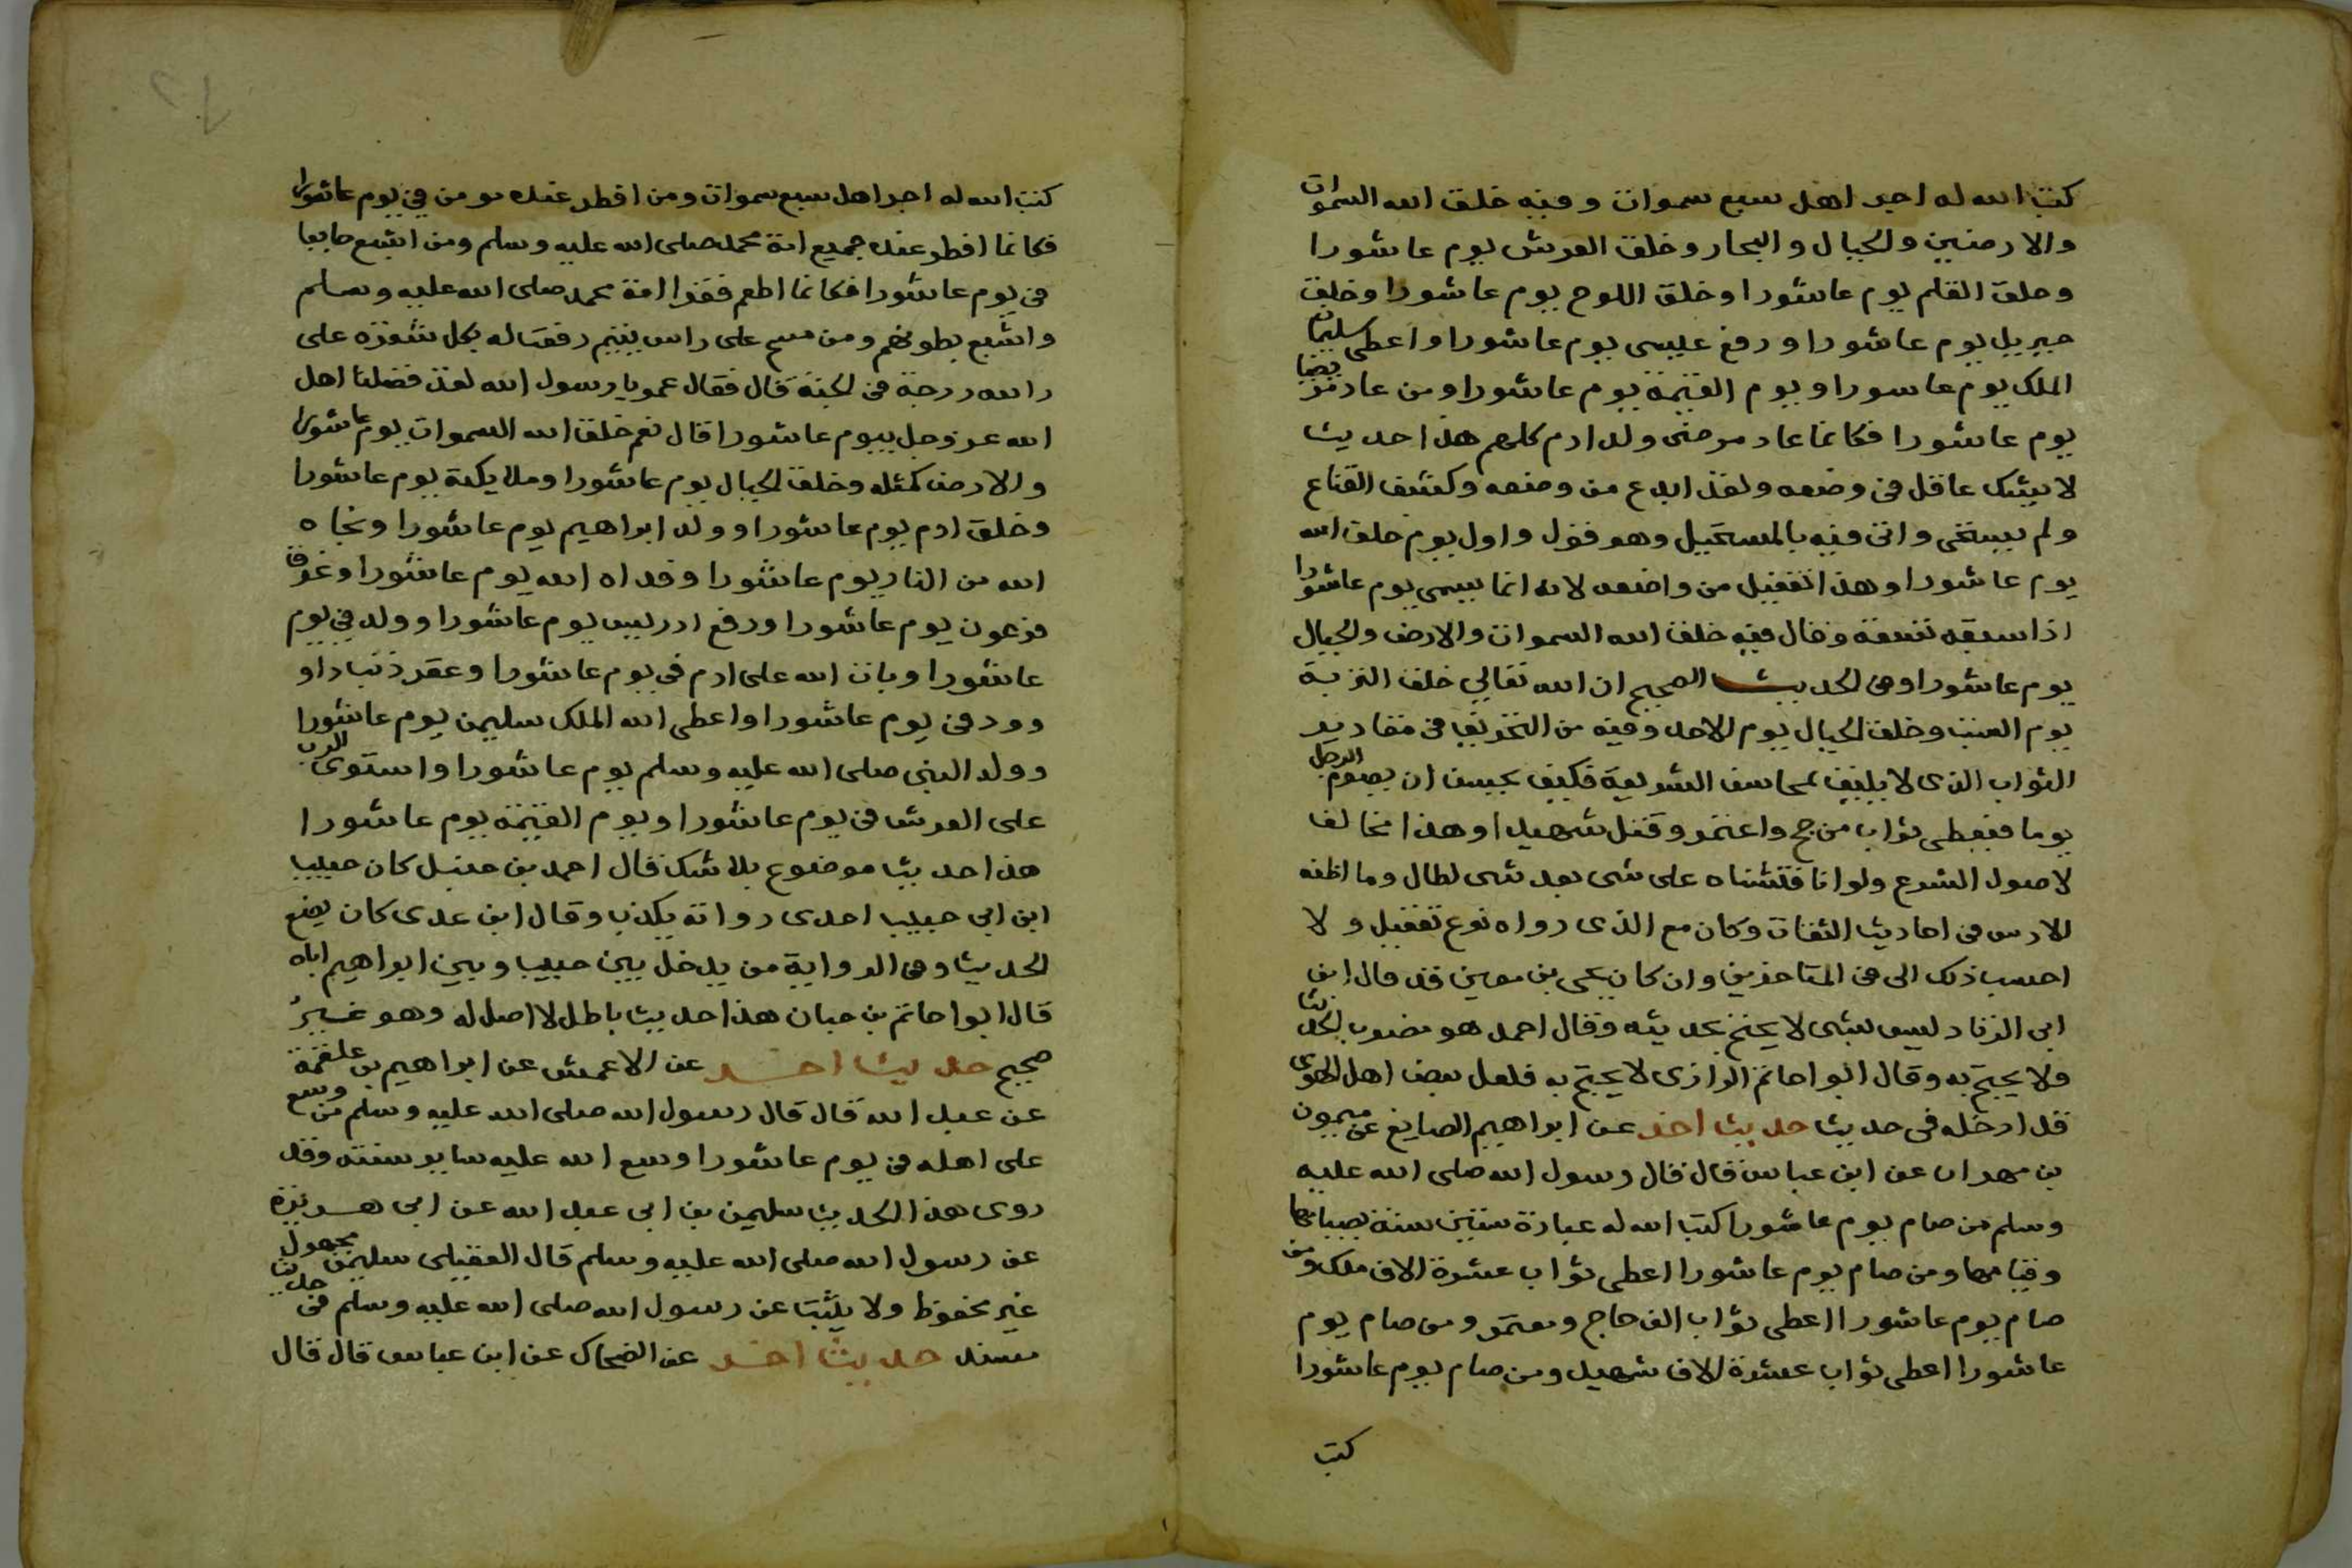 كتب الله له اجر اهل سبع سموات وفيه خلق الله السموات
والارضين والجبال والبحار وخلق العرش يوم عاشورا
وخلق القلم يوم عاشورا وخلق اللوح يوم عاشورا وخلق
جبريل يوم عاشورا ورفع عيسى يوم عاشورا واعطى سليمان
الملك يوم عاسورا ويوم القيمة يوم عاشورا ومن عاد مريضا
يوم عاشورا فكانما عاد مرضى ولد ادم كلهم هذا حديث
لا يشك عاقل في وضعه ولقد ابدع من وضعه وكشف القناع
ولم يستحى واتى فيه بالمستحيل وهو قول واول يوم خلق الله
يوم عاشورا وهذا تغفيل من واضعه لانه انما يسمى يوم عاشورا
اذا سبقه تسعة وقال فيه خلق الله السموات والارض والجبال
يوم عاشورا وفى الحديث الصحيح ان الله تعالى خلق التربة
يوم السبت وخلق الجبال يوم الاحد وفيه من التحريف في مقادير
الثواب الذى لا يليق بمحاسن الشريعة فكيف يحسن ان يصوم الرجل
يوما فيعطى ثواب من حج واعتمر وقتل شهيدا وهذا مخالف
لاصول الشرع ولو انا فتشناه على شى بعد شى لطال وما اظنه
الا دس في احاديث الثقات وكان مع الذى رواه نوع تغفيل ولا
احسب ذلك الى في المتاخرين وان كان يحيى بن معين قد قال ابن
ابى الزناد ليس بشى لا يحتج بحديثه وقال احمد هو مضطرب الحديث
ولا يحتج به وقال ابو احاتم الرازى لا يحتج به فلعل بعض اهل الهوى
قد ادخله في حديث حديث اخر عن ابراهيم الصايغ عن ميمون
بن مهران عن ابن عباس قال قال رسول الله صلى الله عليه
وسلم من صام يوم عاشورا كتب الله له عبادة ستين سنة بصيامها
وقيامها ومن صام يوم عاشورا اعطى ثواب عشرة الاف ملك ومن
صام يوم عاشورا اعطى ثواب الف حاج ومعتمر ومن صام يوم
عاشورا اعطى ثواب عشرة الاف شهيد ومن صام يوم عاشورا
كتب
كتب الله له اجر اهل سبع سموات ومن افطر عنده مومن في يوم عاشورا
فكانما افطر عنده جميع امة محمد صلى الله عليه وسلم ومن اشبع جايعا
في يوم عاشورا فكانما اطعم فقرا امة محمد صلى الله عليه وسلم
واشبع بطونهم ومن مسح على راس يتيم رفعت له بكل شعرة على
راسه درجة في الجنة قال فقال عمر يا رسول الله لقد فضلنا اهل
الله عز وجل بيوم عاشورا قال نعم خلق الله السموات يوم عاشورا
والارض كمثله وخلق الجبال يوم عاشورا وملايكة يوم عاشورا
وخلق ادم يوم عاشورا وولد ابراهيم يوم عاشورا ونجاه
الله من النار يوم عاشورا وفداه الله يوم عاشورا وغرق
فرعون يوم عاشورا ورفع ادريس يوم عاشورا وولد في يوم
عاشورا وتاب الله على ادم في يوم عاشورا وغفر ذنب داو
وود في يوم عاشورا واعطى الله الملك سليمن يوم عاشورا
وولد النبي صلى الله عليه وسلم يوم عاشورا واستوى الرب
على العرش في يوم عاشورا ويوم القيمة يوم عاشورا
هذا حديث موضوع بلا شك قال احمد بن حنبل كان حبيب
ابن ابي حبيب احدى رواته يكذب وقال ابن عدى كان يضع
الحديث وفى الرواية من يدخل بين حبيب وبين ابراهيم اباه
قال ابوا حاتم بن حبان هذا حديث باطل لا اصل له وهو غير
صحيح حديث اخر عن الاعمش عن ابراهيم بن علقمة
عن عبد الله قال قال رسول الله صلى الله عليه وسلم من وسع
على اهله في يوم عاشورا وسع الله عليه ساير سنته وقد
روى هذا الحديث سليمن بن ابى عبد الله عن ابى هريرة
عن رسول الله صلى الله عليه وسلم قال العقيلى سليمن مجهول
غير محفوظ ولا يثبت عن رسول الله صلى الله عليه وسلم في حديث
مسند حديث اخر عن الضحاك عن ابن عباس قال قال